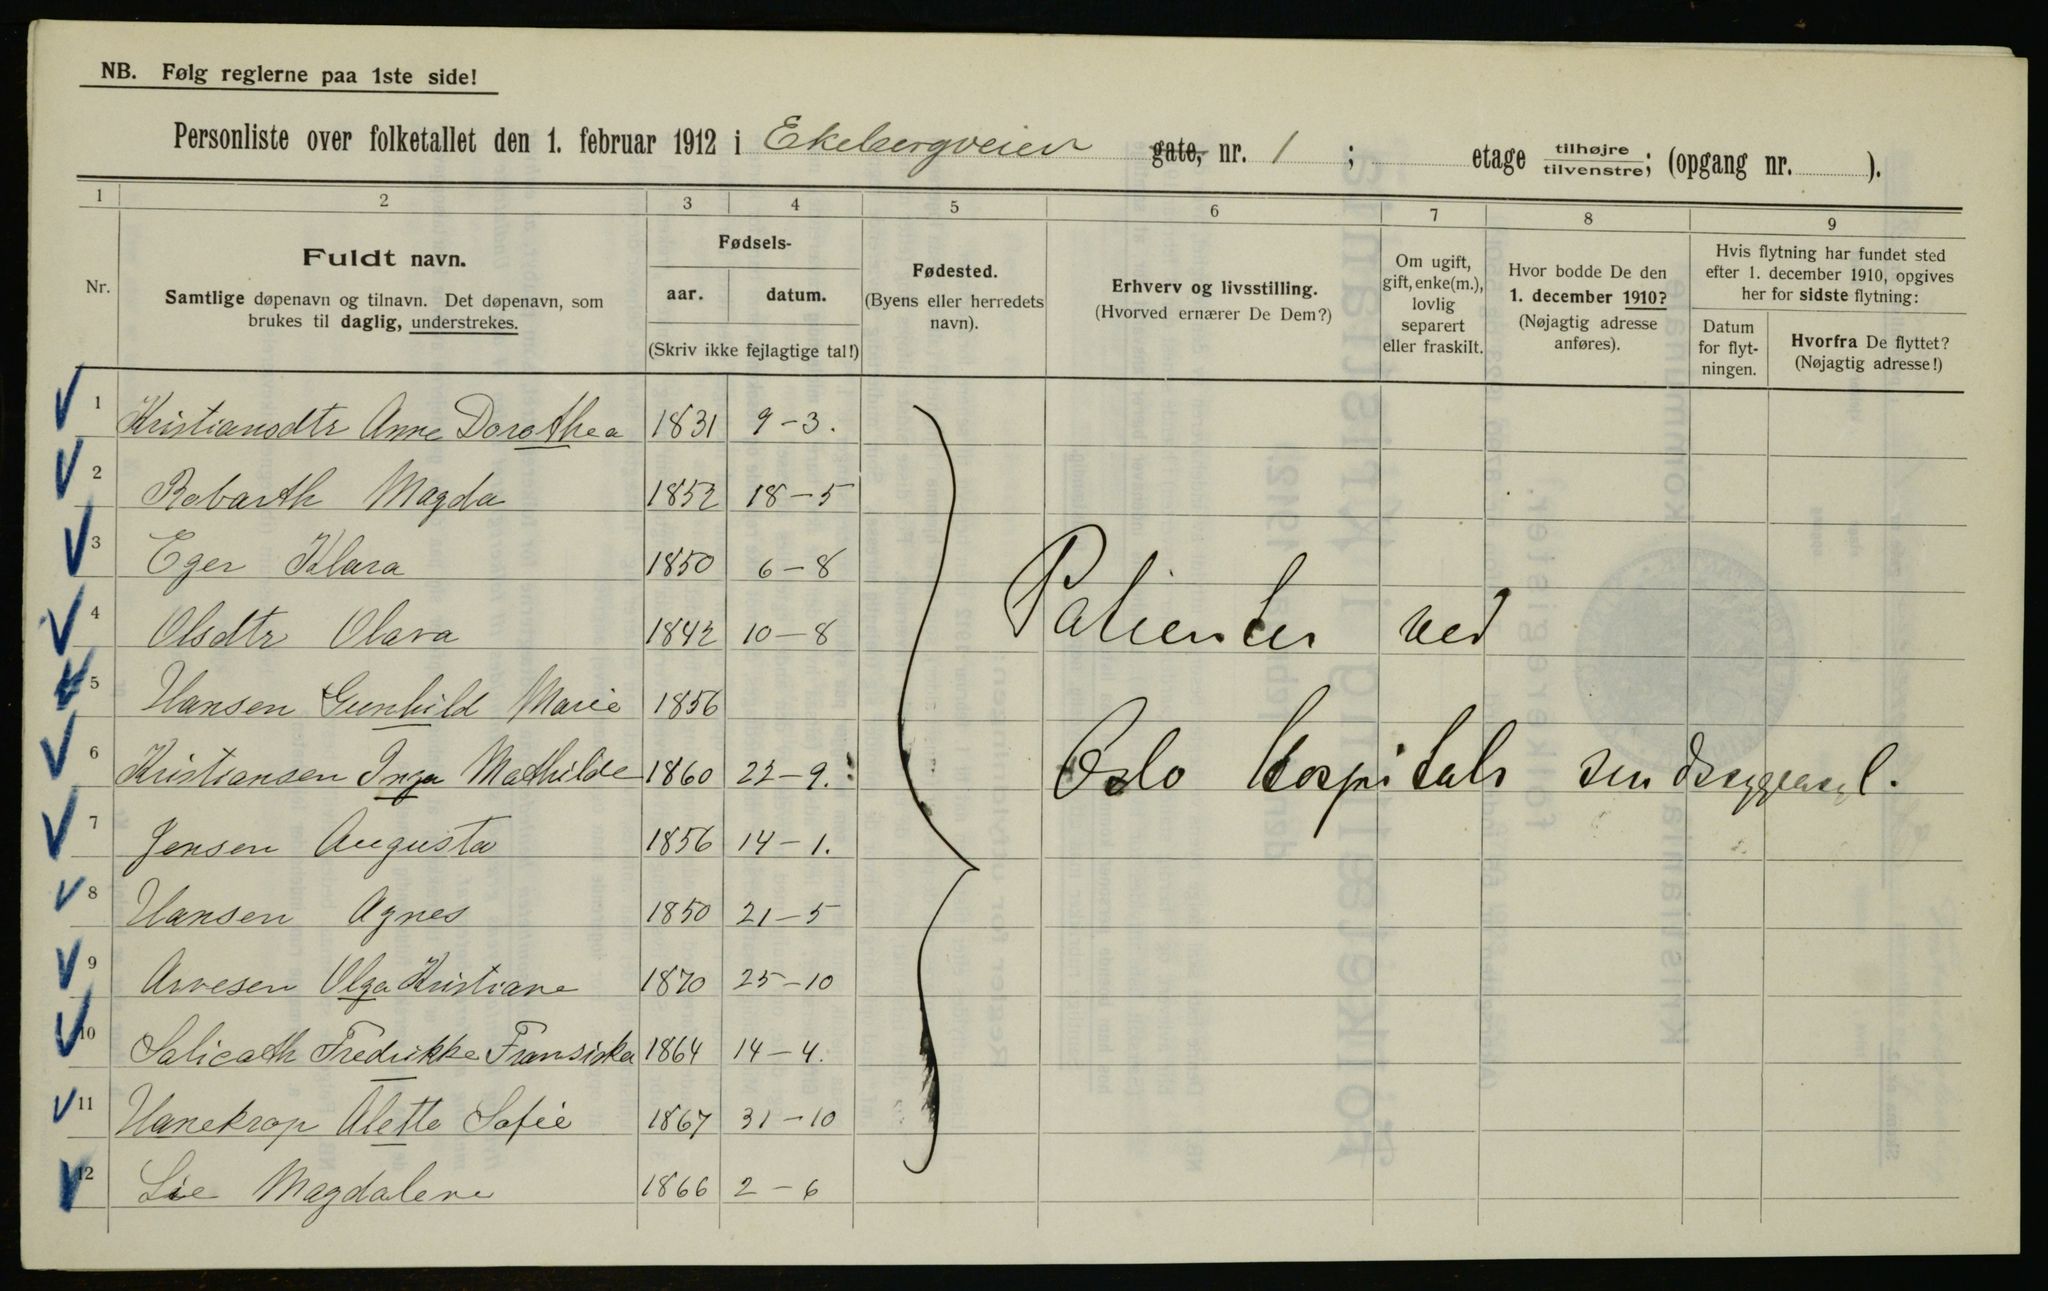 NB. Følg reglerne paa 1ste side!
Personliste over folketallet den 1. februar 1912 i Ekebergveien gate, nr. 1 ; etage tilhøjre/tilvenstre; (opgang nr. ).
1 2 3 4 5 6 7 8 9
Nr.
Fuldt navn.
Samtlige døpenavn og tilnavn. Det døpenavn, som
brukes til daglig, understrekes.
Fødsels-
aar. datum.
(Skriv ikke fejlagtige tal!)
Fødested.
(Byens eller herredets
navn).
Erhverv og livsstilling.
(Hvorved ernærer De Dem?)
Om ugift,
gift, enke(m.),
lovlig
separert
eller fraskilt.
Hvor bodde De den
1. december 1910?
(Nøjagtig adresse
anføres).
Hvis flytning har fundet sted
efter 1. december 1910, opgives
her for sidste flytning:
Datum
for flyt-
ningen.
Hvorfra De flyttet?
(Nøjagtig adresse!)
1 Kristiansdtr Anne Dorothea 1831 9-3.
2 Robarth Magda 1852 18-5
3 Eger Klara 1850 6-8
4 Olsdtr Olava 1842 10-8
5 Hansen Gunhild Marie 1856
6 Kristiansen Inga Mathilde 1860 22-9.
7 Jensen Augusta 1856 14-1.
8 Hansen Agnes 1850 21-5
9 Arvesen Olga Kristiane 1870 25-10
10 Salicath Fredrikke Fransiska 1864 14-4.
11 Hanekrop Alette Sofie 1867 31-10
12 Lie Magdalene 1866 2-6
Patienter ved
Oslo hospitals sindssygeasyl.